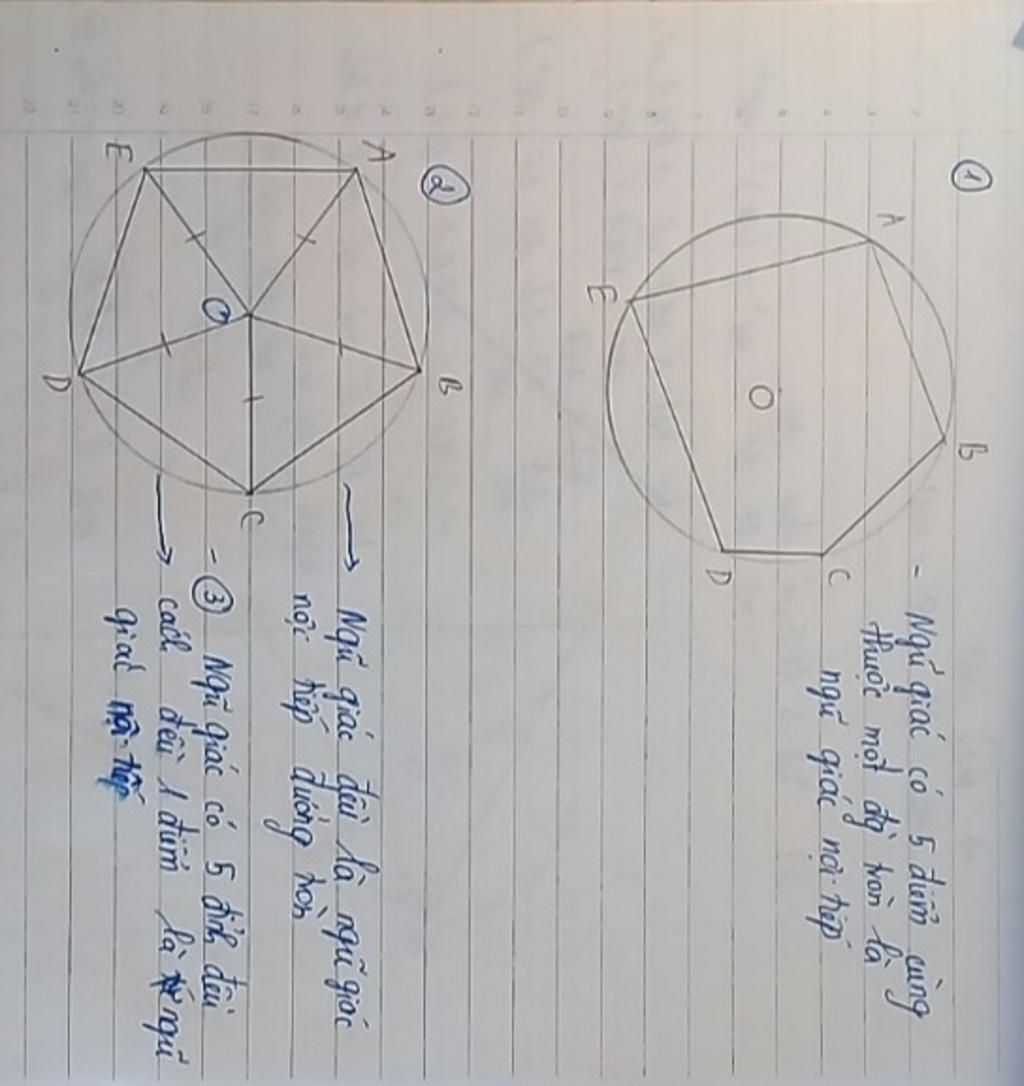 ①
A
B
C
D
E
O
- Ngũ giác có 5 điểm cùng
thuộc một đg tròn là
ngũ giác nội tiếp
②
A
B
C
D
E
O
→ Ngũ giác đều là ngũ giác
nội tiếp đường tròn
- ③ Ngũ giác có 5 đỉnh đều
→ cách đều 1 điểm là ngũ
giác nội tiếp